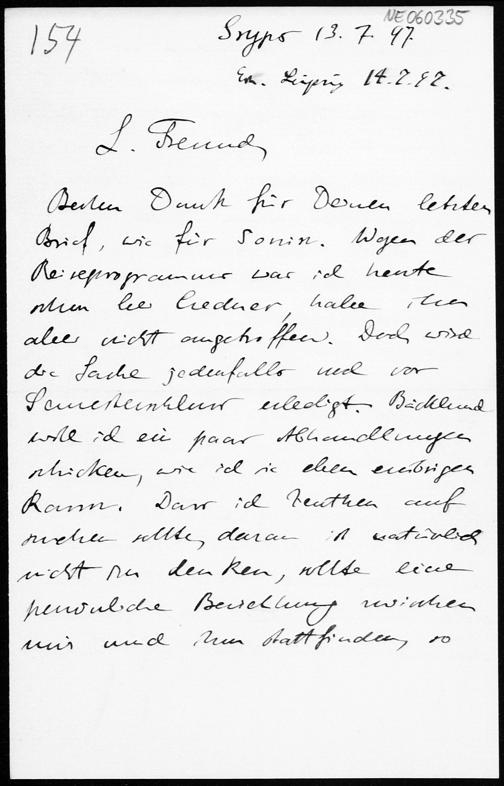 NE060335
154
13. 7. 97.
Leipzig 14.7.97.
L. Freund,
Besten Dank für Deinen letzten
Brief, wie für Wegen der
Reiseprogramme war ich heute
schon bei habe ihn
aber nicht angetroffen. Doch wird
die Sache jedenfalls noch vor
Semesterschluss erledigt. Bäcklund
will ich ein paar Abhandlungen
schicken, wie ich sie eben erübrigen
kann. Dass ich Zeuthen auf
suchen sollte, daran ist natürlich
nicht zu denken, sollte eine
persönliche Beziehung zwischen
mir und ihm stattfinden, so